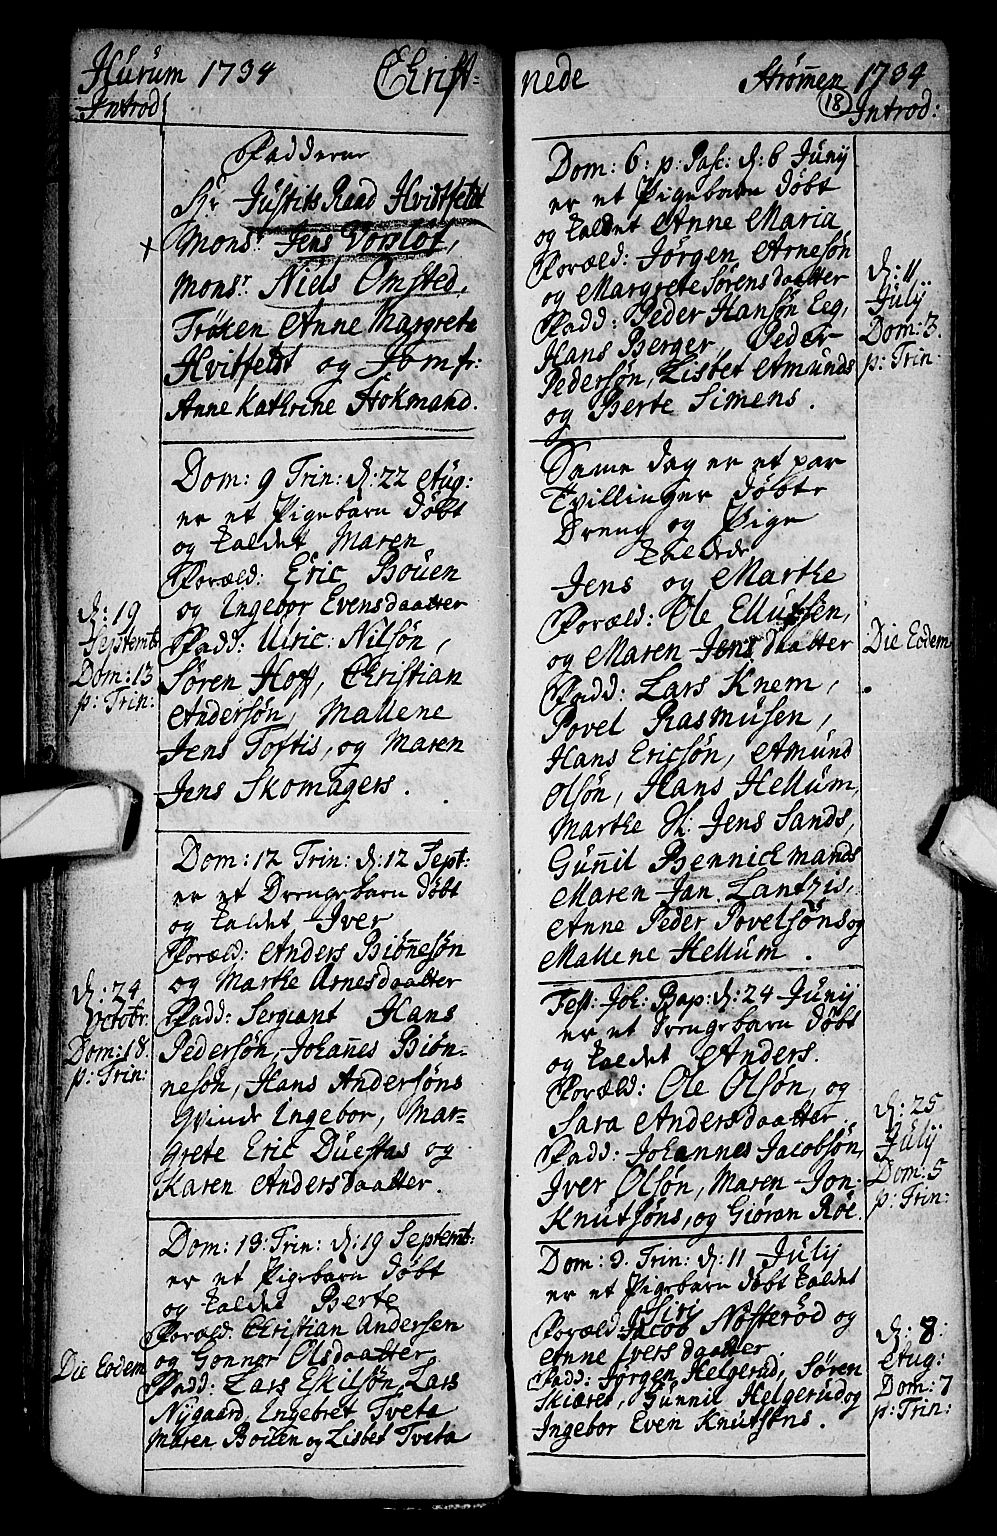 Hurum 1734 Christ-
Introd
Fadderne
Hr Justits Raad Hvidtfeldt
+ Mons.r Jens Vorslöt,
Mons.r Niels Omsted,
Fröken Anne Margrete
Hvitfeldt og Jomfr:
Anne Kathrine Stokmand.
Dom: 9 Trin: d: 22 Aug:
er et Pigebarn döbt
og kaldet Maren
Foræld: Eric Bouen
og Ingebor Evensdaatter
Fadd: Ulric Nilsön,
Sören Hoff, Christian
Andersön, Mallene
Jens Toftis, og Maren
Jens Skomagers.
d: 19
Septemb:
Dom: 13
p: Trin:
Dom: 12 Trin: d: 12 Sept:
er et Drengebarn döbt
og kaldet Iver
Foræld: Anders Biönnesön
og Marthe Arnesdaatter
Fadd: Sergiant Hans
Pedersön, Johannes Biön-
nesön, Hans Andersöns
Qvinde Ingebor, Mar-
grete Eric Duestas og
Karen Andersdaatter.
d: 24
Octobr:
Dom: 18
p: Trin:
Dom: 13: Trin: d: 19 Septemb:
er et Pigebarn döbt
og kaldet Berte
Foræld: Christian Andersen
og Gonnor Olsdaatter
Fadd: Lars Eskilsön, Lars
Nygaard, Ingebret Tveta
Maren Bouen og Lisbet Tveta
Die Eodem
nede Strömmen 1734
18
Introd:
Dom: 6: p: Pasc: d: 6 Junij
er et Pigebarn döbt
og kaldet Anne Maria
Foræld: Jörgen Arnesön
og Margrete Sörensdaatter
Fadd: Peder Hansön Eeg,
Hans Berger, Peder
Pedersön, Lisbet Amunds
og Berte Simens.
d: 11
Julij
Dom: 3.
p: Trin:
Same dag er et par
Tvillinger döbte
Dreng og Pige
kaldede
Jens og Marthe
Foræld: Ole Ellufsen,
og Maren Jensdaatter
Fadd: Lars Knem,
Povel Rasmusen,
Hans Ericsön, Amund
Olsön, Hans Hellum,
Marthe H: Jens Sands,
Gunnil Bennickmands
Maren Jan Lantzis,
Anne Peder Povelsöns og
Mallene Hellum.
Die Eodem
Fest: Joh: Bap: d: 24 Junij
er et Drengebarn döbt
og kaldet Anders.
Foræld: Ole Olsön, og
Sara Andersdaatter
Fadd: Johannes Jacobsön,
Iver Olsön, Maren Jon
Knutsöns, og Giöran Röe.
d: 25
Julij
Dom: 5
p: Trin:
Dom: 3. Trin: d: 11 Julij
er et Pigebarn döbt kaldet
Siri
Foræld: Jacob Nösteröd og
Anne Iversdaatter
Fadd: Jörgen Helgerud, Sören
Skiæret, Gunnil Helgerud og
Ingebor Even Knutsens.
d: 8:
Aug:
Dom: 7
p: Trin: